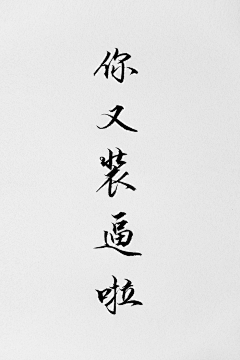 你又装逼啦